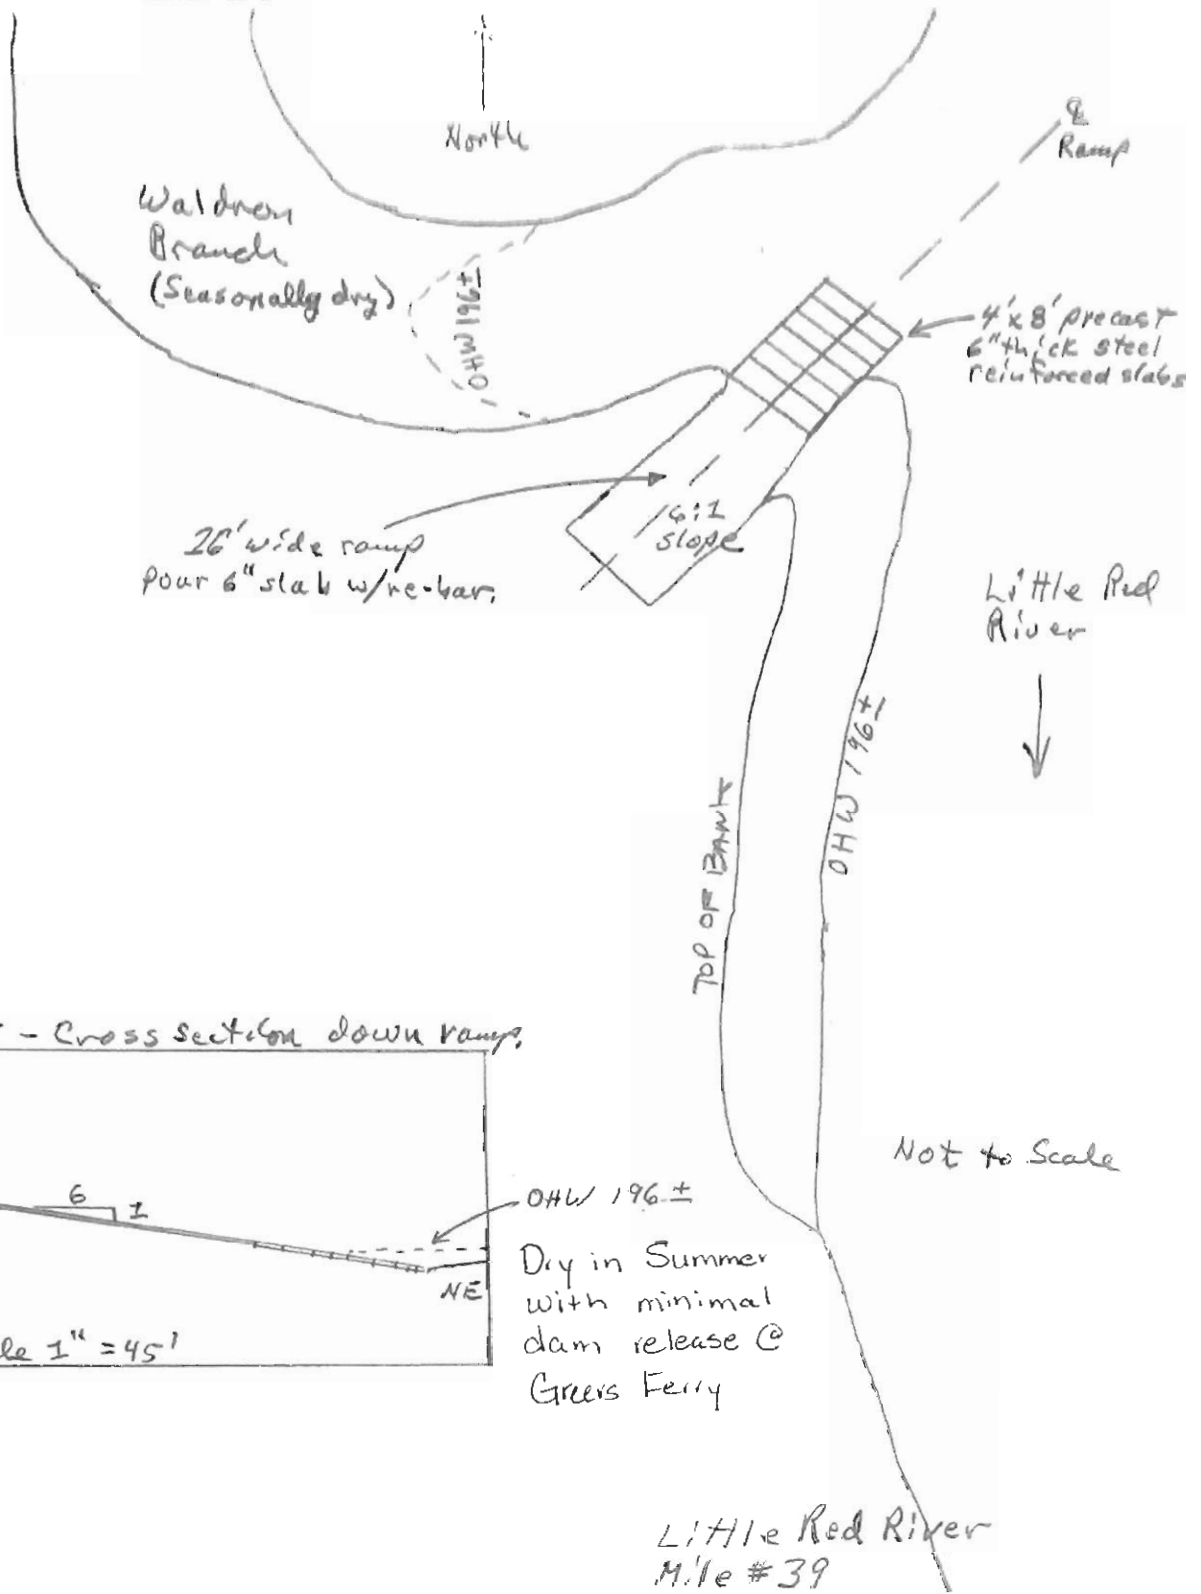 North
℄
Ramp
Waldron
Branch
(Seasonally dry)
OHW 196±
4'x8' precast
6" thick steel
reinforced slabs
26' wide ramp
pour 6" slab w/re-bar.
6:1
slope
Little Red
River
OHW 196±
TOP OF BANK
- Cross section down ramp.
6
1
OHW 196±
NE
Dry in Summer
with minimal
dam release @
Greers Ferry
1" = 45'
Not to Scale
Little Red River
Mile #39